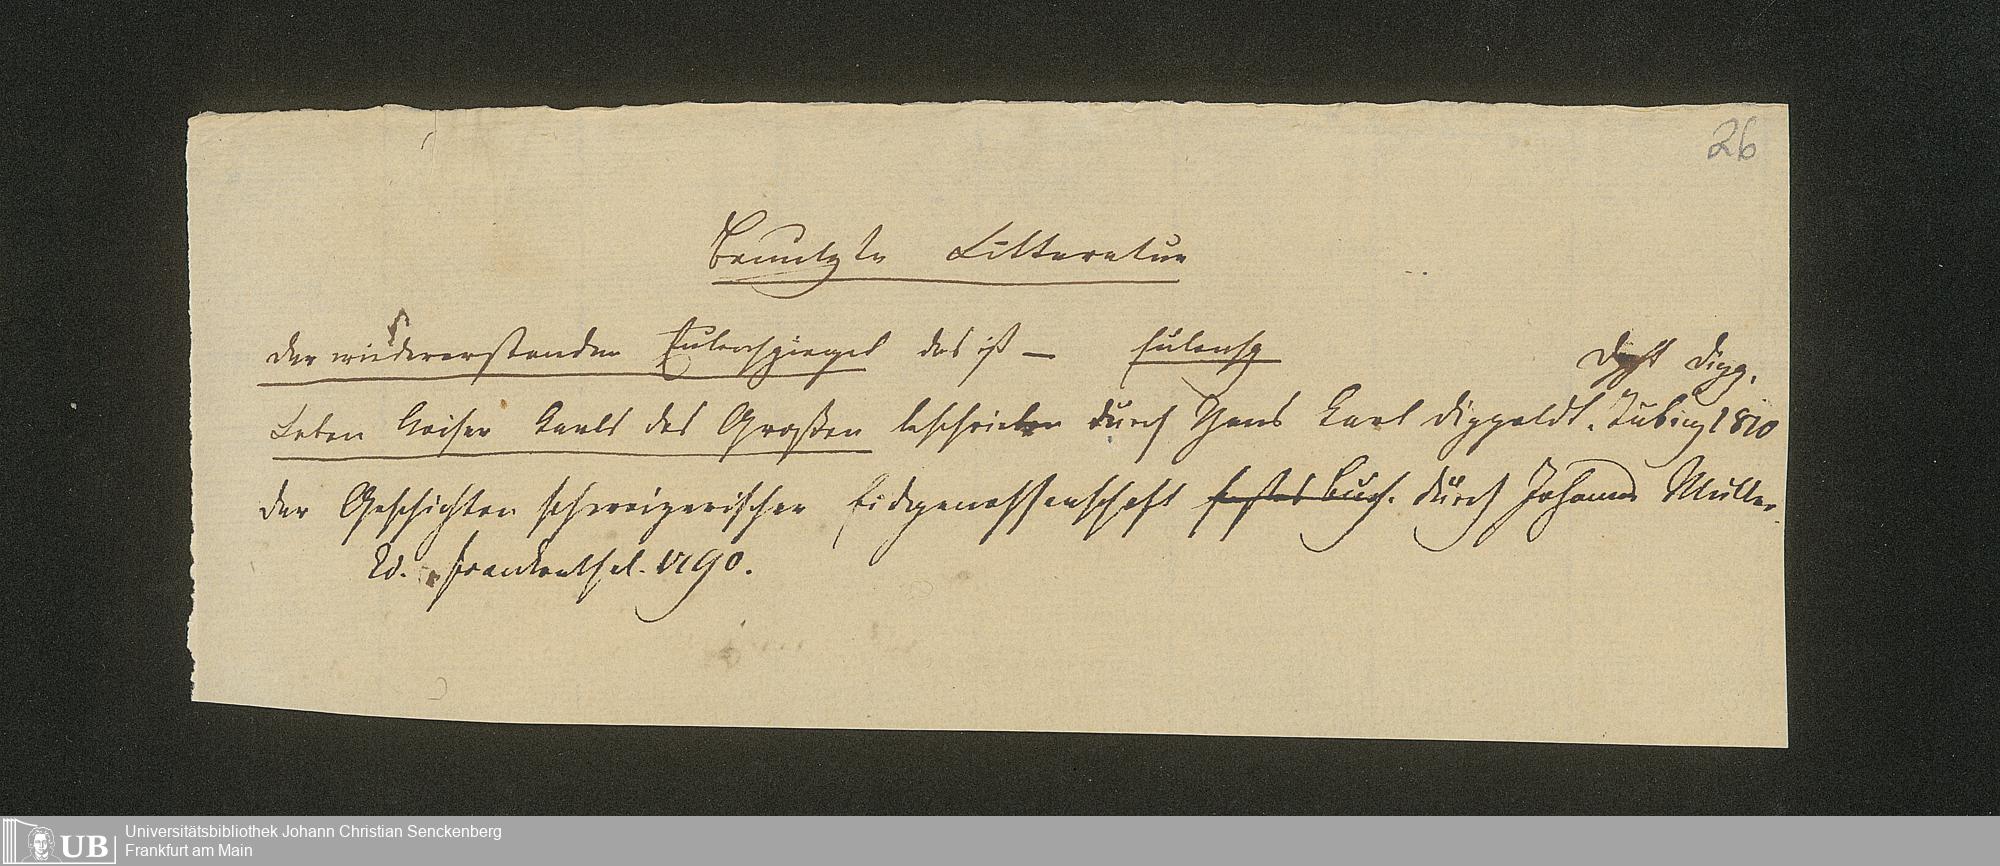 26
Benutzte Litteratur
der wiedererstanden Eulenspiegel das ist — Eulensp
Dipp.
Leben Kaiser Karls des Großen beschrieben durch Hans Karl Dippoldt. Tubing 1810
Der Geschichten schweizerischer Eidgenossenschaft erstes Buch. durch Johannes Müller.
Ed. Frankenthal. 1790.
UB
Universitätsbibliothek Johann Christian Senckenberg
Frankfurt am Main